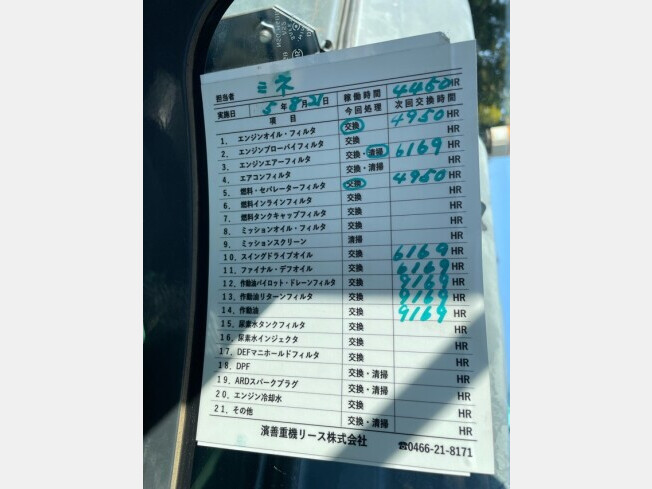 担当者 ミネ 稼働時間 4450HR
実施日 5年8月21日 今回処理 次回交換時間
項目
1．エンジンオイル・フィルタ 交換 4950HR
2．エンジンブローバイフィルタ 交換 HR
3．エンジンエアーフィルタ 交換・清掃 6169HR
4．エアコンフィルタ 交換・清掃 HR
5．燃料・セパレーターフィルタ 交換 4950HR
6．燃料インラインフィルタ 交換 HR
7．燃料タンクキャップフィルタ 交換 HR
8．ミッションオイル・フィルタ 交換 HR
9．ミッションスクリーン 清掃 HR
10．スイングドライブオイル 交換 6169HR
11．ファイナル・デフオイル 交換 6169HR
12．作動油パイロット・ドレーンフィルタ 交換 9169HR
13．作動油リターンフィルタ 交換 9169HR
14．作動油 交換 9169HR
15．尿素水タンクフィルタ 交換 HR
16．尿素水インジェクタ 交換 HR
17．DEFマニホールドフィルタ 交換 HR
18．DPF 交換・清掃 HR
19．ARDスパークプラグ 交換・清掃 HR
20．エンジン冷却水 交換 HR
21．その他 交換・清掃 HR
濱善重機リース株式会社 ☎0466-21-8171